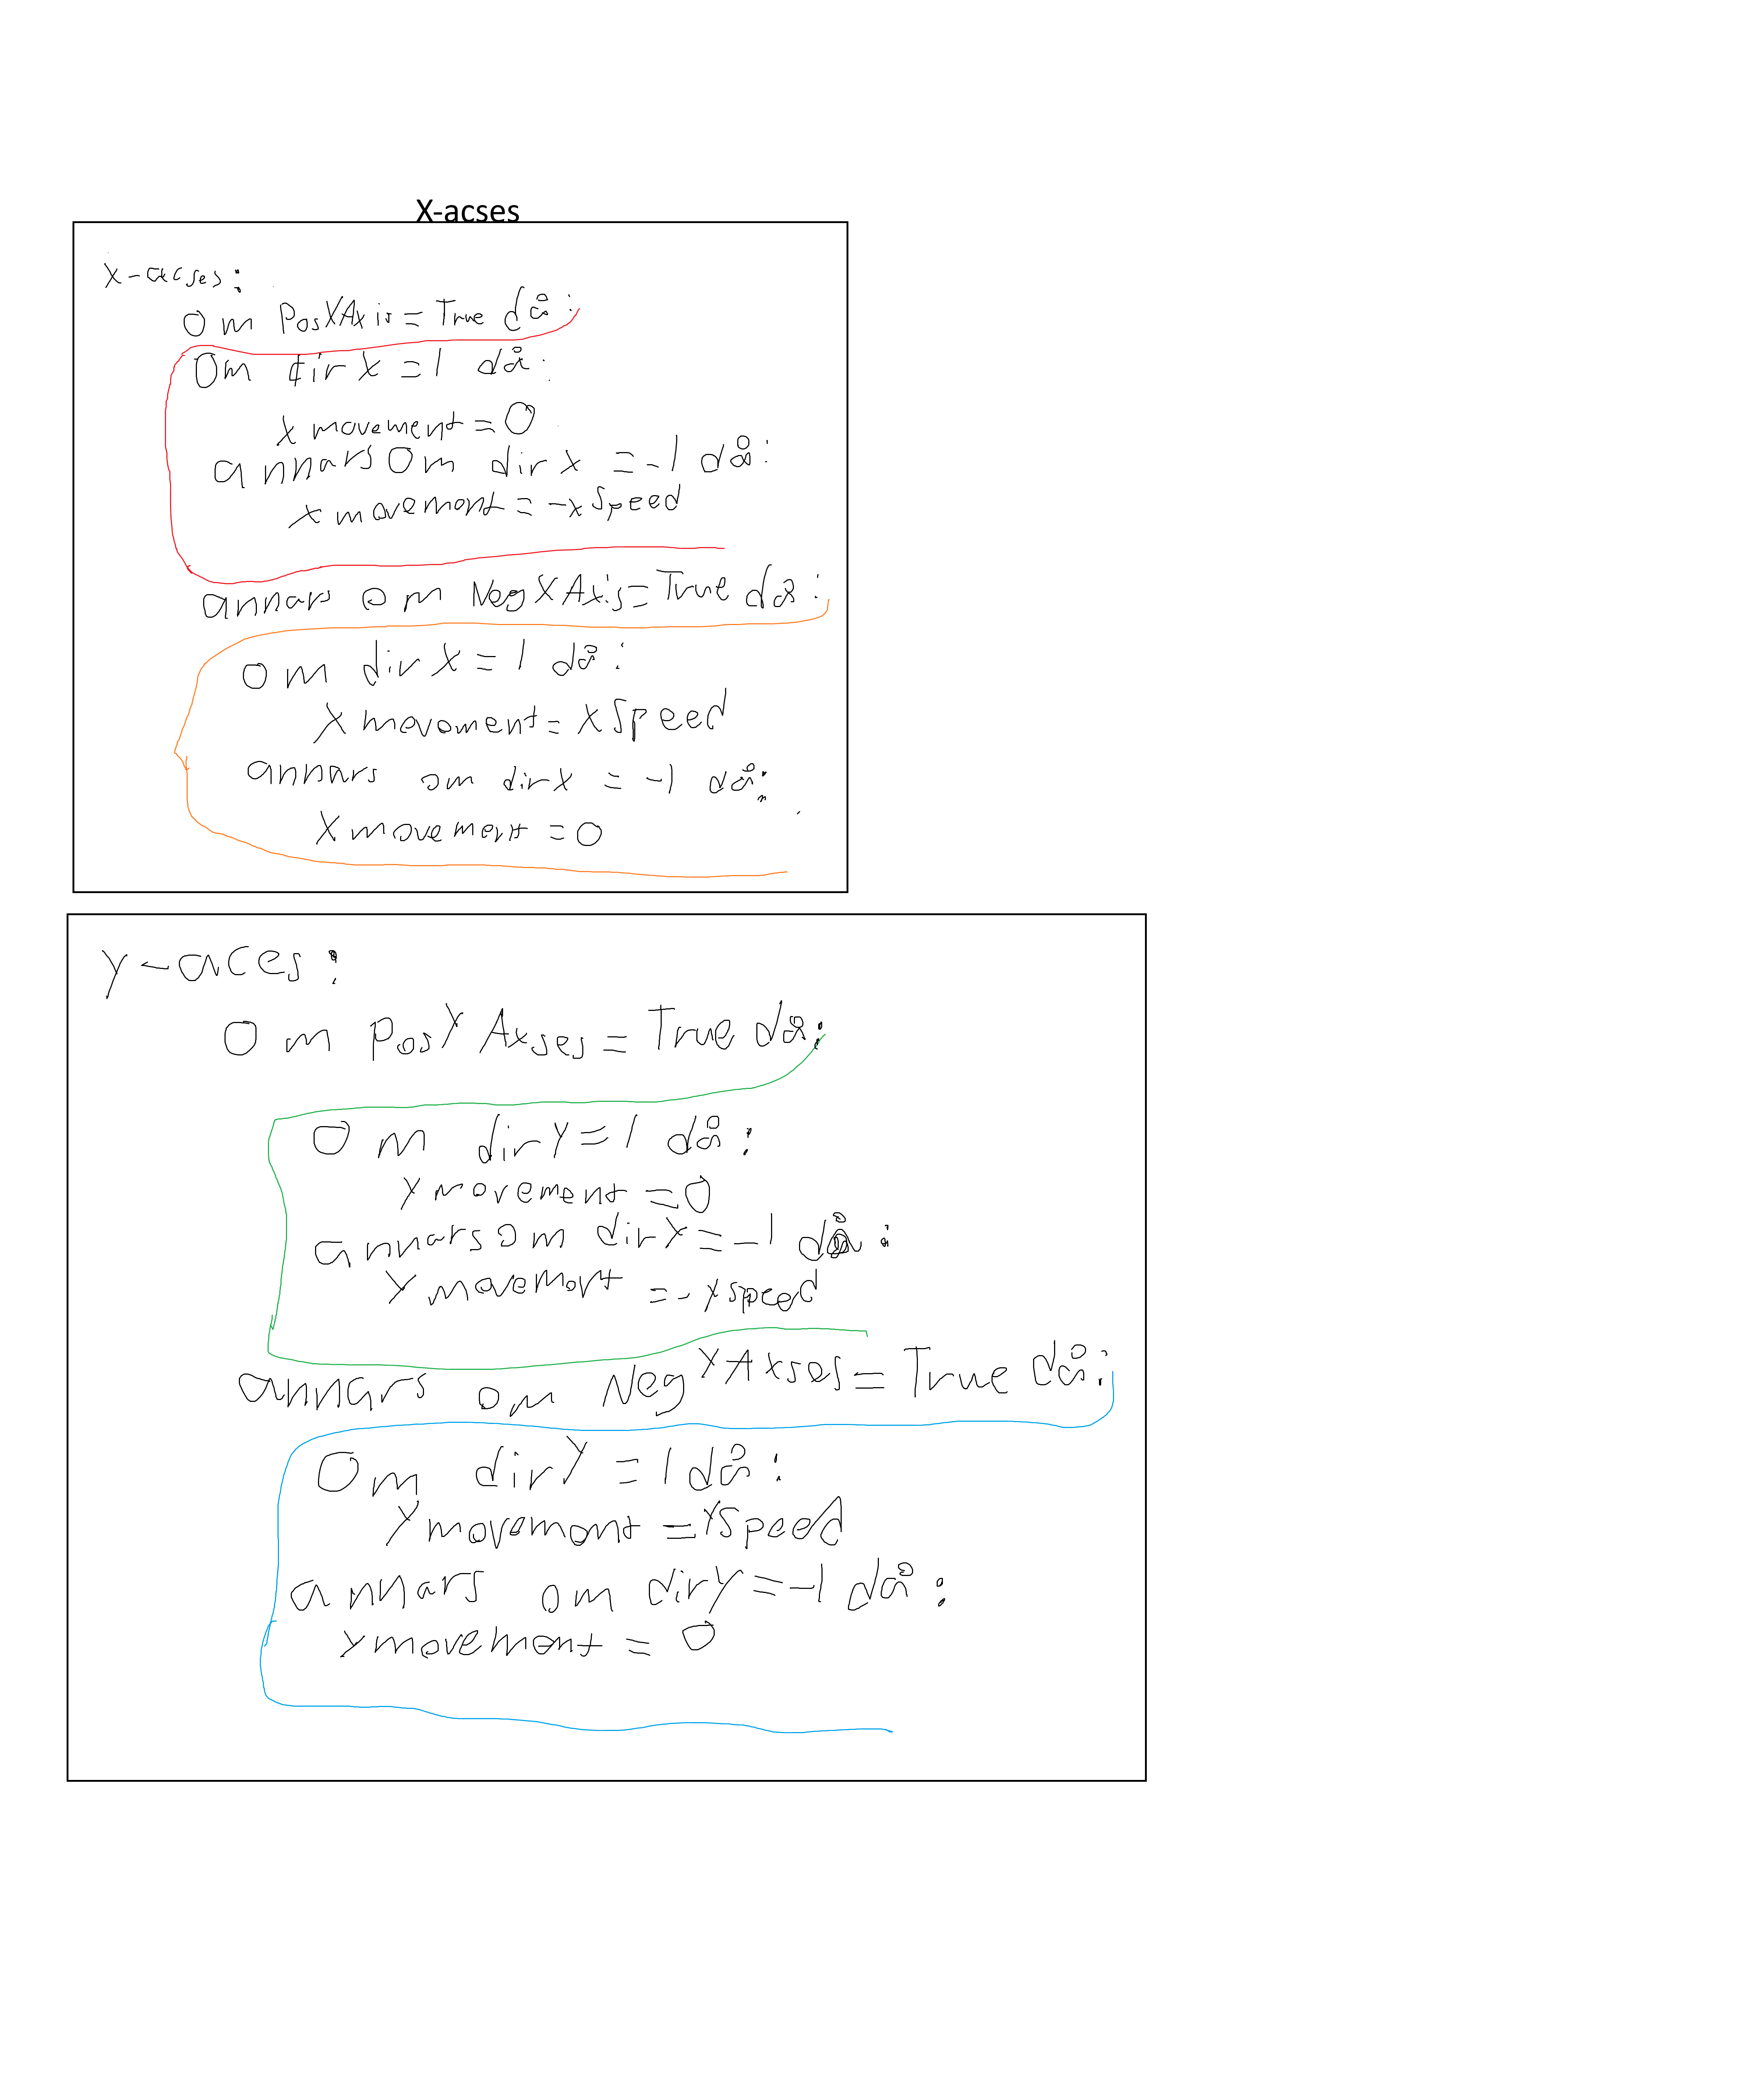 X-acses
x-acses:
Om PosXAxis = True då:
Om dirX = 1 då:
x movement = 0
annars Om dirx = -1 då:
x movement = -xSpeed
annars om NegXAxis = True då:
om dirX = 1 då:
X movement = XSpeed
annars om dirX = -1 då:
X movement = 0
y-aces:
Om PosYAxses = True då:
Om dirY = 1 då:
Y movement = 0
annars om dirY = -1 då:
Y movement = -Yspeed
annars om NegYAxses = True då:
Om dirY = 1 då:
Y movement = YSpeed
annars om dirY = -1 då:
Y movement = 0